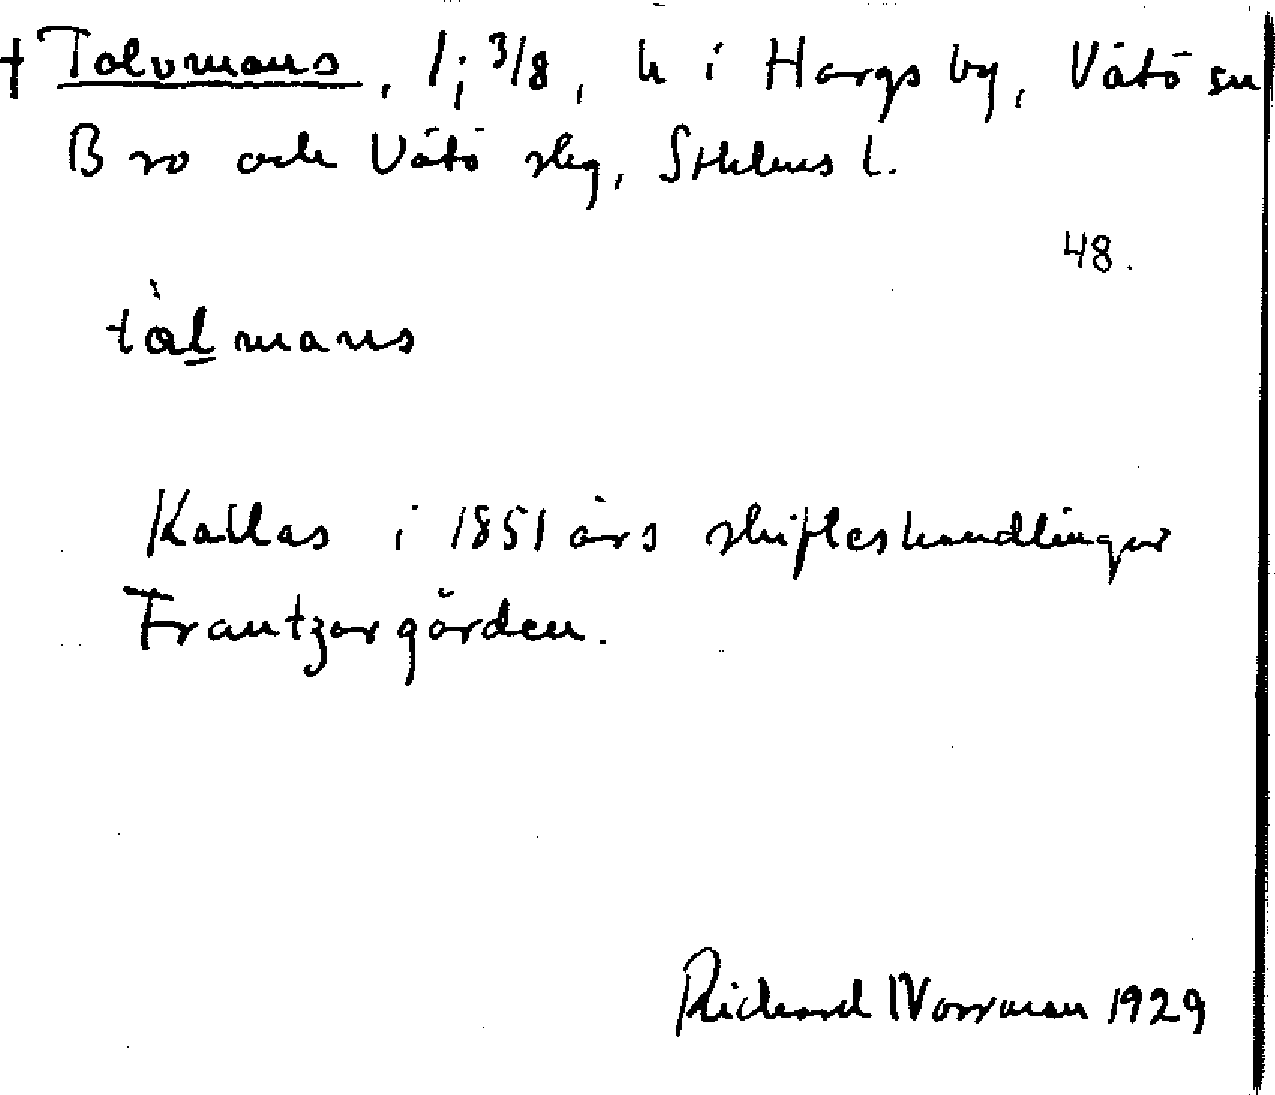 † Tolvmans, 1; 3/8, h i Hargs by, Vätö sn
Bro och Vätö skg, Sthlms l.
48.
tàlmans
Kallas i 1851 års skifteshandlingar
Frantzargården.
Richard Norrman 1929